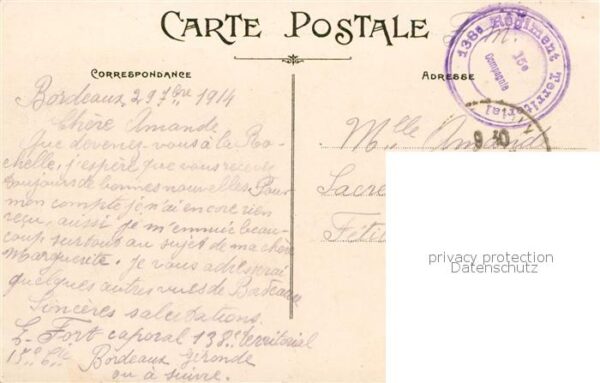 CARTE POSTALE
CORRESPONDANCE
ADRESSE
138e Régiment Territorial
15e
Compagnie
Bordeaux 29 7bre 1914
Chère Amande
Que devenez-vous à la Ro-
chelle, j'espère que vous recevez
toujours de bonnes nouvelles. Pour
mon compte je n'ai encore rien
reçu, aussi je m'ennuie beau-
coup surtout au sujet de ma chère
Marguerite. Je vous adresserai
quelques autres vues de Bordeaux
Sincères salutations.
L. Fort caporal 138e territorial
15e Cie Bordeaux Gironde
ou à suivre.
Mlle Amande
9 10
Sacre
privacy protection
Datenschutz